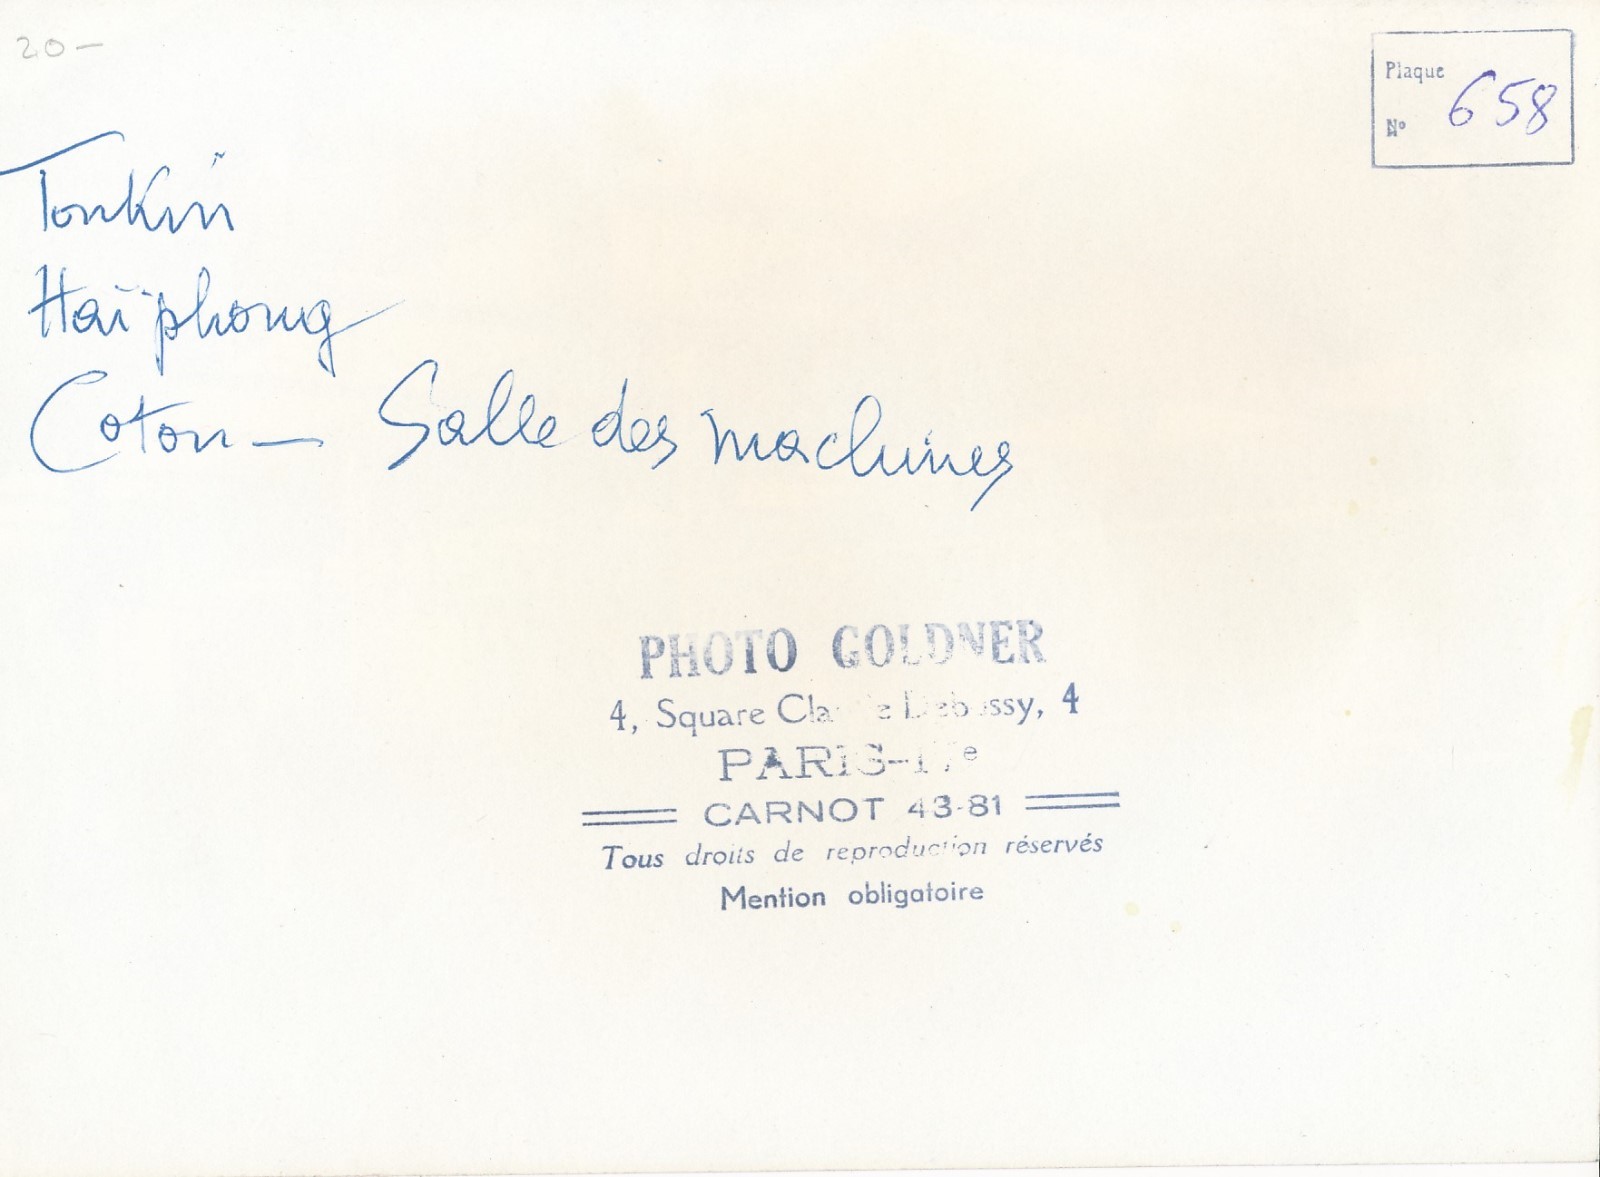 20 —
Plaque
N° 658
Tonkin
Haïphong
Coton — Salle des machines
PHOTO GOLDNER
4, Square Claude Debussy, 4
PARIS-17e
CARNOT 43-81
Tous droits de reproduction réservés
Mention obligatoire